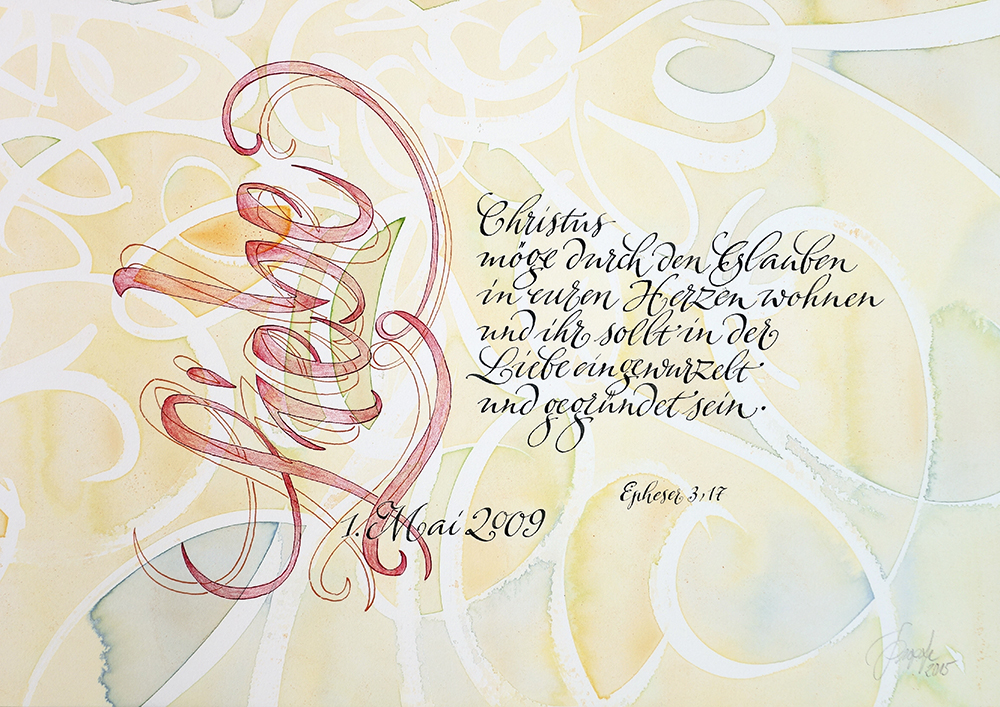 Christus
möge durch den Glauben
in euren Herzen wohnen
und ihr sollt in der
Liebe eingewurzelt
und gegründet sein.
Epheser 3,17
1. Mai 2009
2015